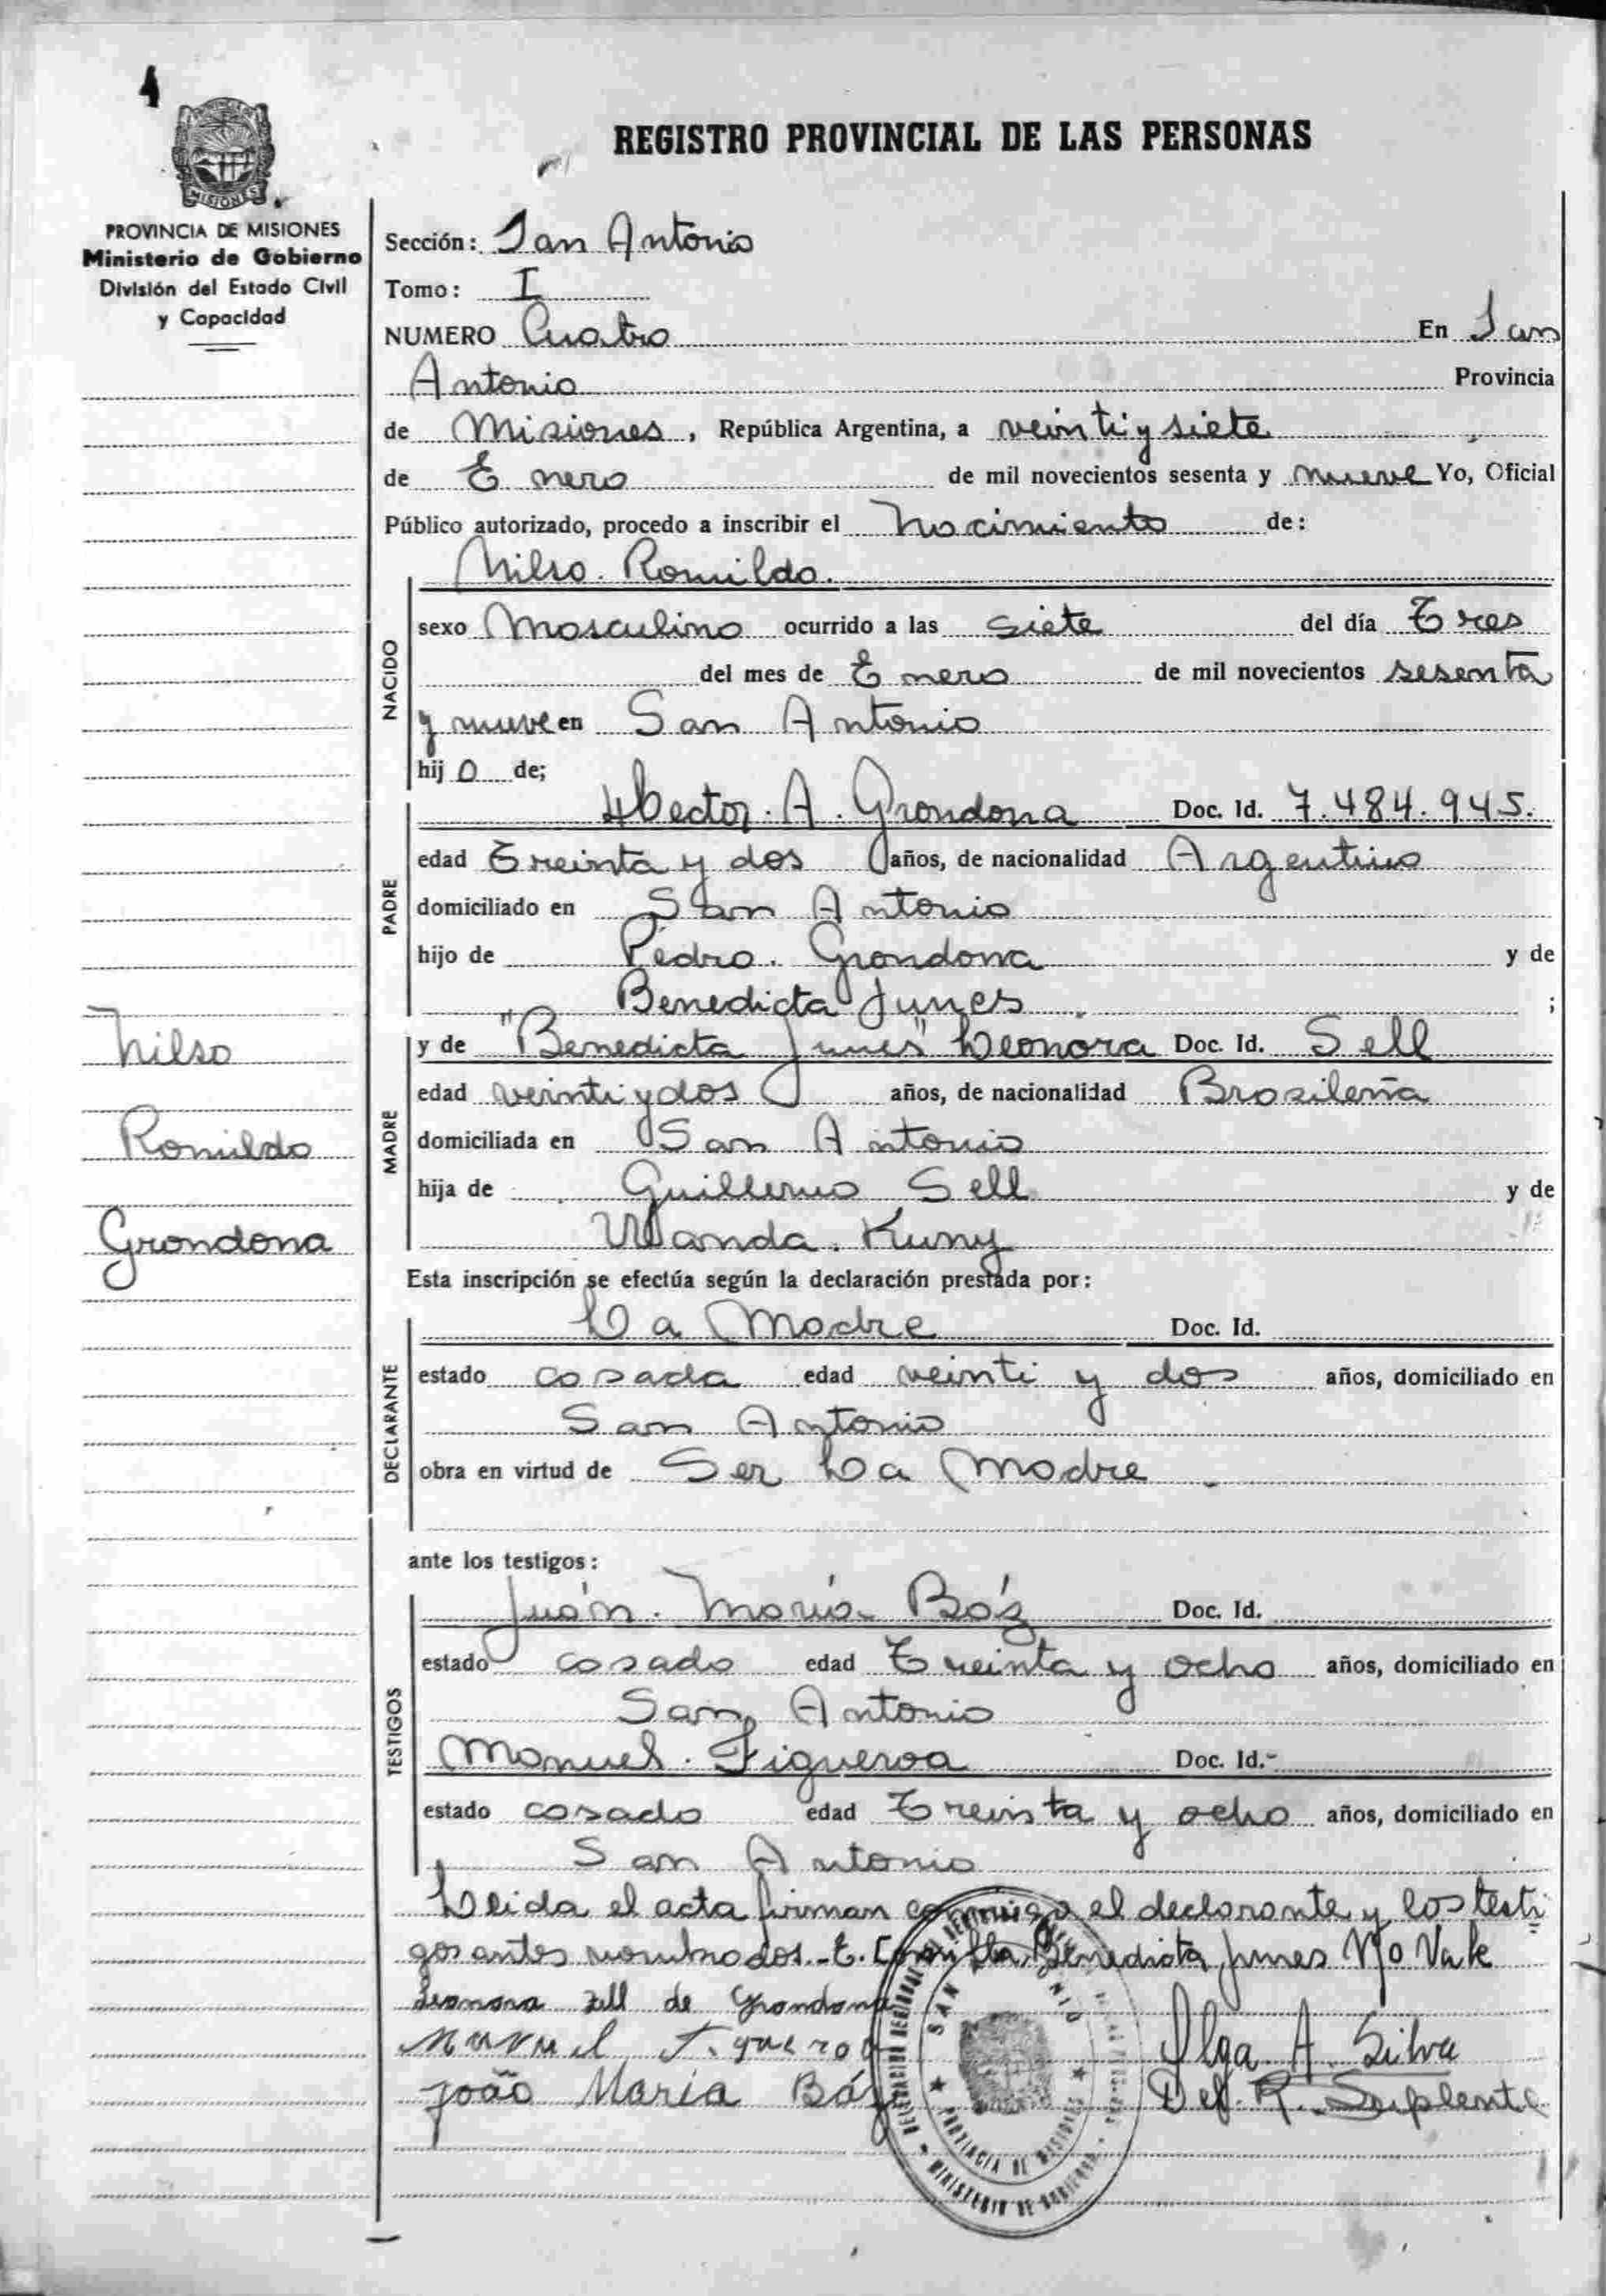 4
REGISTRO PROVINCIAL DE LAS PERSONAS
MISIONES
PROVINCIA DE MISIONES
Ministerio de Gobierno
División del Estado Civil
y Capacidad
Sección: San Antonio
Tomo: I
NUMERO Cuatro En San
Antonio Provincia
de Misiones, República Argentina, a veinti y siete
de Enero de mil novecientos sesenta y nueve Yo, Oficial
Público autorizado, procedo a inscribir el Nacimiento de:
Nilso. Romildo.
NACIDO
sexo Masculino ocurrido a las siete del día Tres
del mes de Enero de mil novecientos sesenta
y nueve en San Antonio
hijo de;
PADRE
Hector. A. Grondona Doc. Id. 7.484.945.
edad Treinta y dos años, de nacionalidad Argentino
domiciliado en San Antonio
hijo de Pedro. Grondona y de
Benedicta Junes ;
Nilso
Romildo
Grondona
MADRE
y de "Benedicta Junes" Leonora Doc. Id. Sell
edad veinti y dos años, de nacionalidad Brasileña
domiciliada en San Antonio
hija de Guillermo Sell y de
Wanda. Kuny
Esta inscripción se efectúa según la declaración prestada por:
DECLARANTE
La Madre Doc. Id.
estado casada edad veinti y dos años, domiciliado en
San Antonio
obra en virtud de Ser La Madre
ante los testigos:
TESTIGOS
Juán. María. Báz Doc. Id.
estado casado edad Treinta y ocho años, domiciliado en
San Antonio
Manuel. Figueroa Doc. Id.-
estado casado edad Treinta y ocho años, domiciliado en
San Antonio
Leida el acta firman conmigo el declarante y los testi
gos antes nombrados.-E. Benedicta Junes No Vale
Leonora Zell de Grondona
Manuel Figueroa
João Maria Báz
Olga A. Silva
Del. R. Suplente
SAN ANTONIO
PROVINCIA DE MISIONES
MINISTERIO DE GOBIERNO